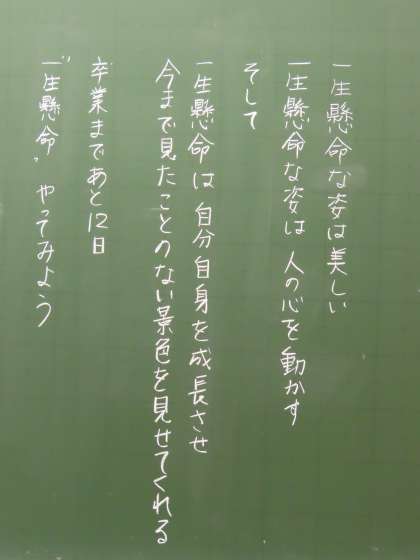 一生懸命な姿は美しい
一生懸命な姿は 人の心を動かす
そして
一生懸命は 自分自身を成長させ
今まで見たことのない景色を見せてくれる
卒業まであと12日
"一生懸命" やってみよう